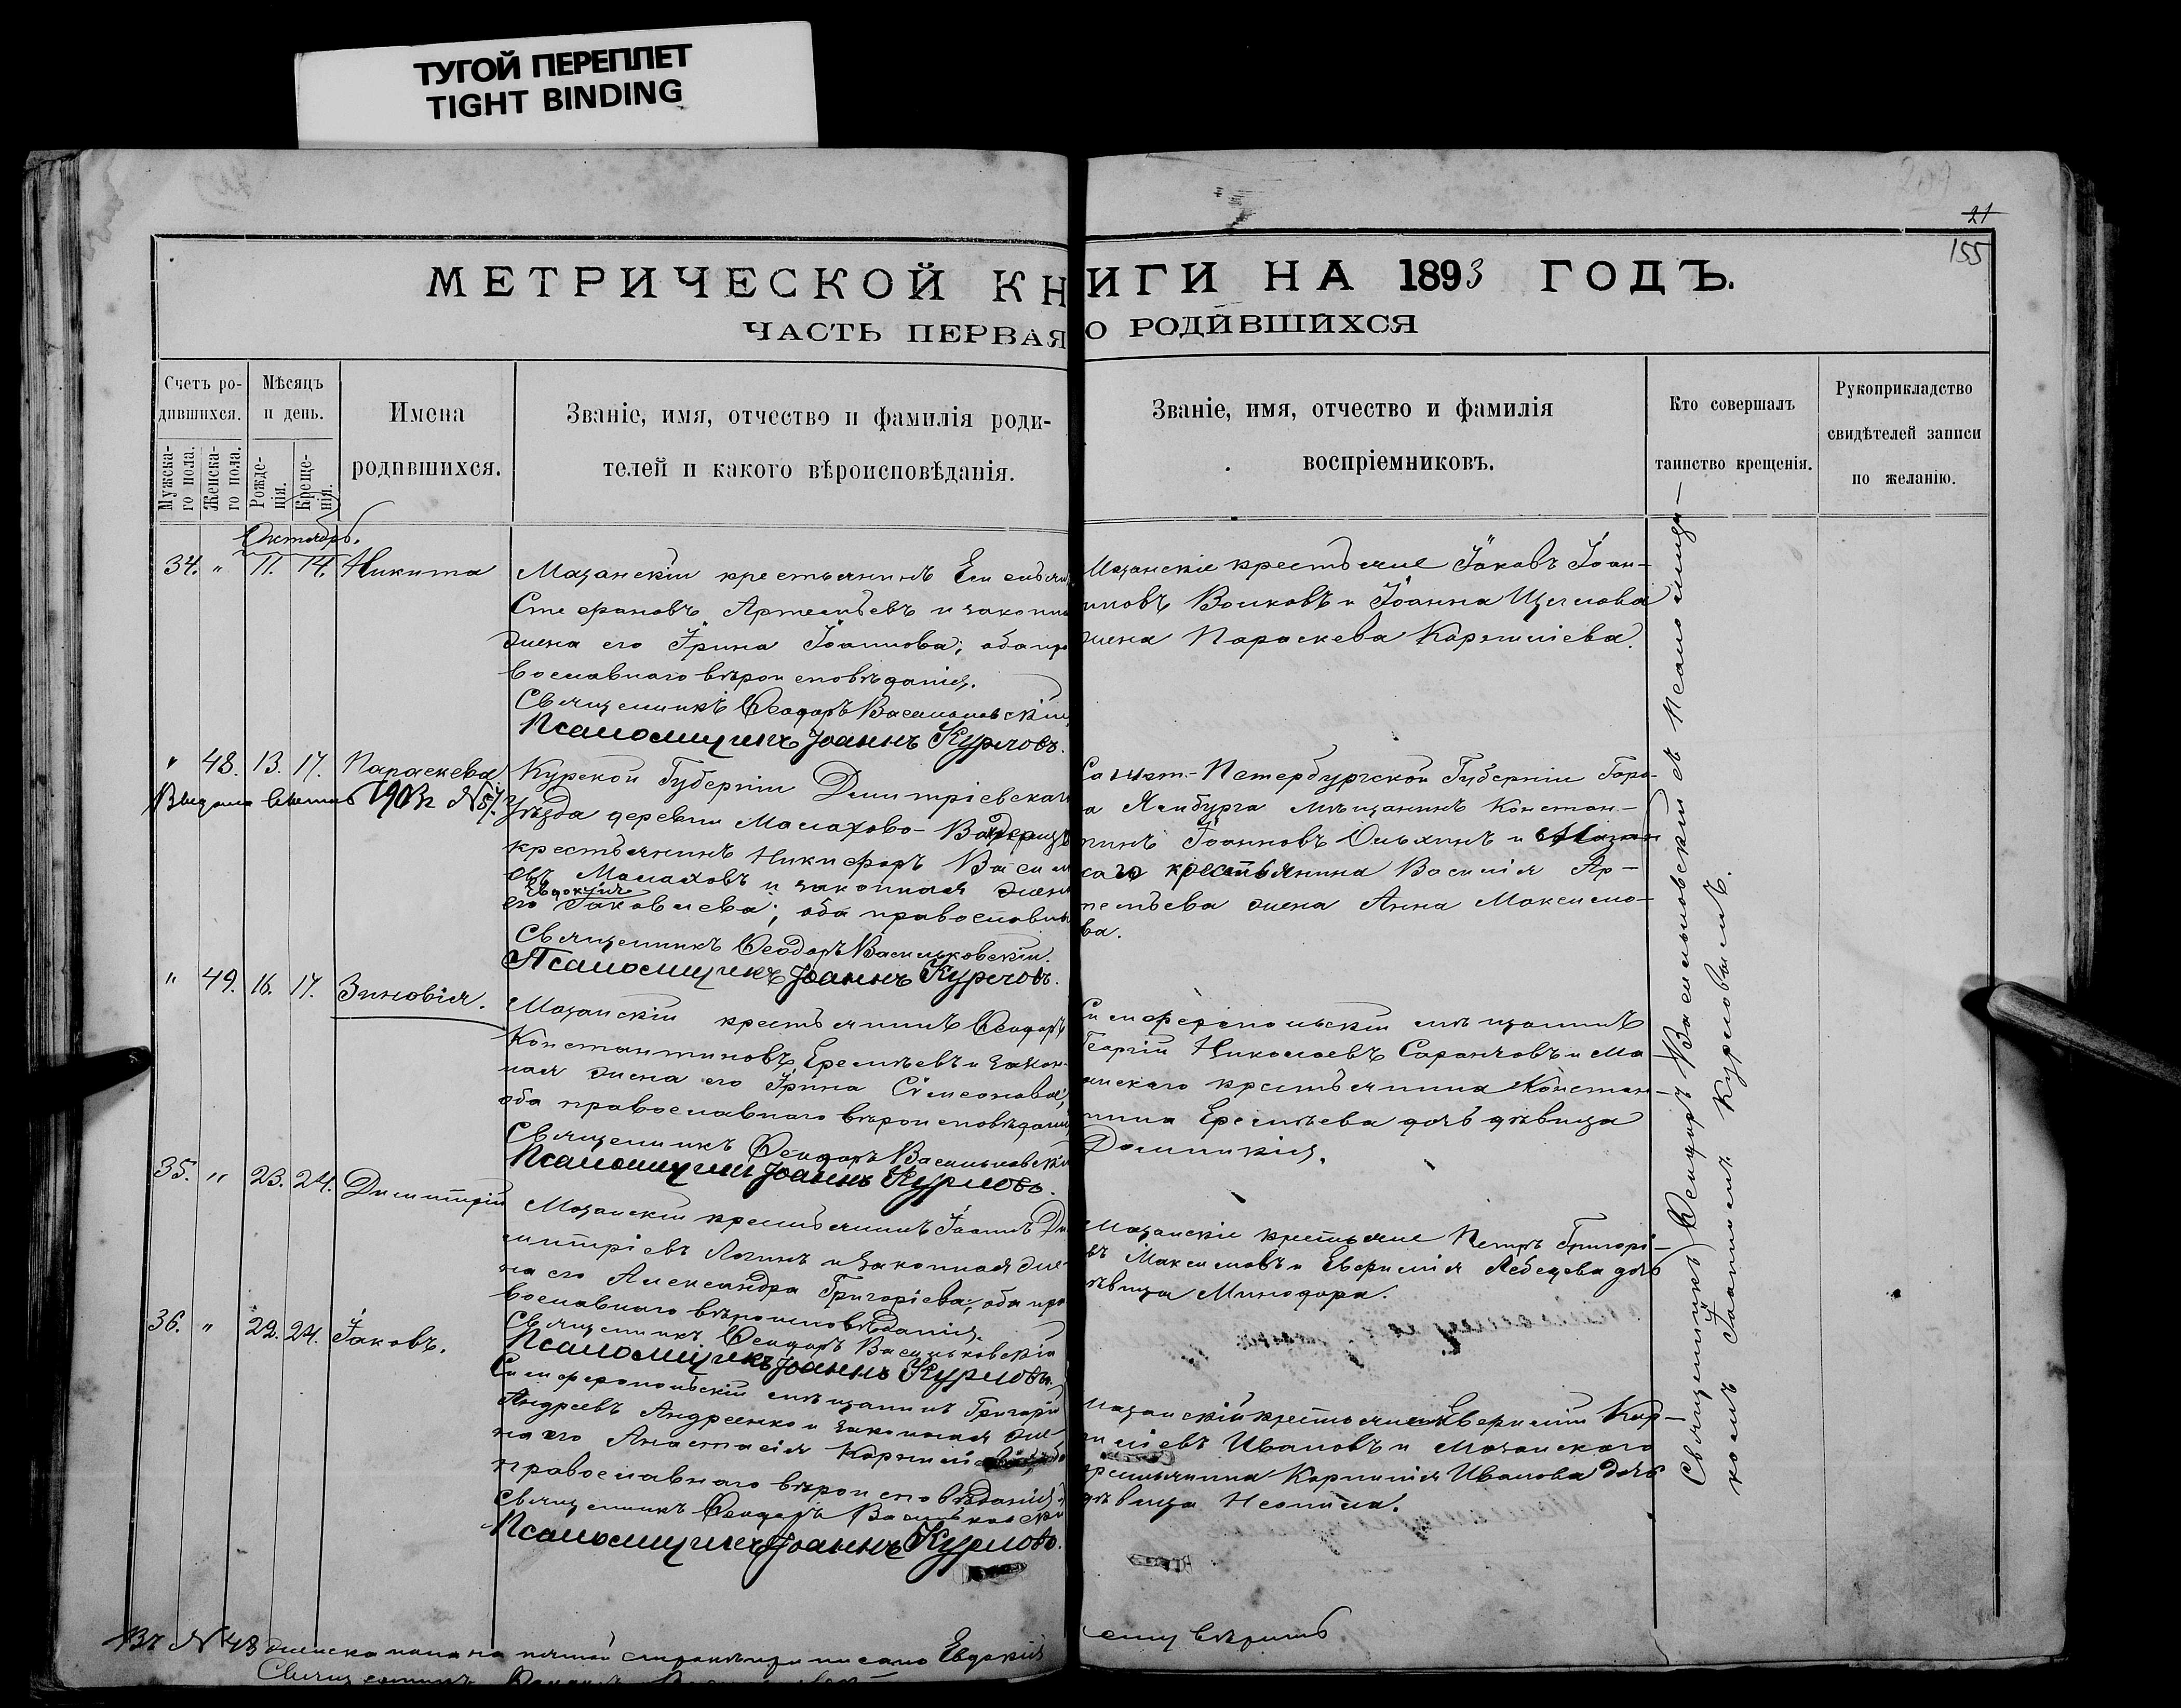 ТУГОЙ ПЕРЕПЛЕТ
TIGHT BINDING
21
155
МЕТРИЧЕСКОЙ КНИГИ НА 1893 ГОДЪ.
ЧАСТЬ ПЕРВАЯ О РОДИВШИХСЯ
Счетъ ро-
дившихся.
Мужска-
го пола.
Женска-
го пола.
Мѣсяцъ
и день.
Рожде-
нія.
Креще-
нія.
Имена
родившихся.
Званіе, имя, отчество и фамилія роди-
телей и какого вѣроисповѣданія.
Званіе, имя, отчество и фамилія
воспріемниковъ.
Кто совершалъ
таинство крещенія.
Рукоприкладство
свидѣтелей записи
по желанію.
Октябрь.
34. " 11. 14. Никита
Мазанскій крестьянинъ
Стефановъ Артемьевъ и законна
жена его Ірина Іоаннова; оба пра
вославнаго вѣроисповѣданія.
Священникъ Ѳеодоръ Васильковскій
Псаломщикъ Іоаннъ Курловъ.
Мазанскіе крестьяне Іаковъ Іоан-
новъ Волковъ и Іоанна Щеглова
жена Параскева Корнилiева.
" 48. 13. 17. Параскева
Выдана 1903г №
Курской Губерніи Дмитріевскаго
Уѣзда деревни Малахово-
крестьянинъ Никифоръ Васил
евъ Малаховъ и законная жена
Евдокія
его Іаковлева; оба православна
Священникъ Ѳеодоръ Васильковскій.
Псаломщикъ Іоаннъ Курловъ.
Санкт-Петербургской Губерніи Горо-
а Ямбурга мѣщанинъ Констан-
тинъ Іоанновъ Ольхинъ и Мазан
скаго крестьянина Василія Ар-
темьева жена Анна Максимо-
ва.
" 49. 16. 17. Зиновія.
Мазанскій крестьянинъ Ѳеодоръ
Константиновъ Еремѣевъ и закон-
ная жена его Ірина Сімеонова;
оба православнаго вѣроисповѣданія
Священникъ Ѳеодоръ Васильковскій
Псаломщикъ Іоаннъ Курловъ.
Симферопольскій мѣщанинъ
Георгій Николаевъ Саранчовъ и Ма
анскаго крестьянина Констан-
тина Еремѣева дочь дѣвица
Домникія.
35. " 23. 24. Димитрій
Мазанскій крестьянинъ Іоаннъ Ди
митріевъ Логинъ и законная же-
на его Александра Григоріева; оба пра
вославнаго вѣроисповѣданія.
Священникъ Ѳеодоръ Васильковскій
Псаломщикъ Іоаннъ Курловъ.
Мазанскіе крестьяне Петръ Григорі-
евъ Максимовъ и Евфимія Лебедева дочь
дѣвица Минодора.
36. " 22. 24. Іаковъ.
Симферопольскій мѣщанинъ Григорій
Андреевъ Андреенко и законная же-
на его Анастасія Корнилiева
православнаго вѣроисповѣданія
Священникъ Ѳеодоръ Васильковскій
Псаломщикъ Іоаннъ Курловъ.
Мазанскій крестьянинъ Евфимій Кор-
нилiевъ Ивановъ и Мазанскаго
крестьянина Корнилія Иванова дочь
дѣвица Неонила.
Священникъ Ѳеодоръ Васильковскій съ Псаломщи-
комъ Іоанномъ Курловымъ.
Въ № 48 женска пола на пятой строкѣ приписано Евдокія
сему вѣрить
Священникъ